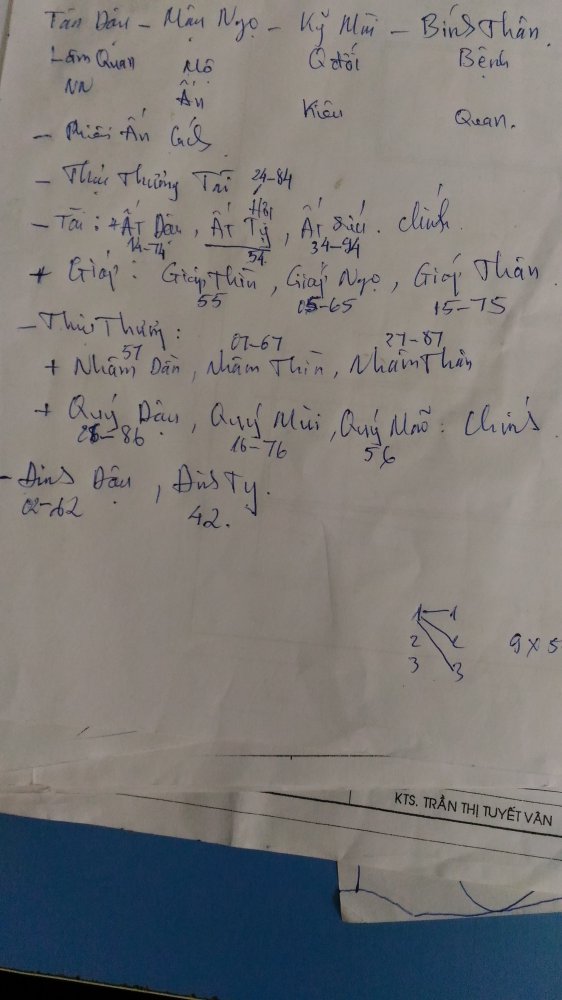 Tân Dậu - Mậu Ngọ - Kỷ Mùi - Bính Thân.
Lâm Quan Mộ Q đới Bệnh
NN Ấn Kiêu Quan.
- Phiêu Ấn Cách
- Thực Thương Trì 24-84
- Tài: + Ất Dậu, Ất Tỵ, Ất Sửu. Chính
14-74 54 34-94
+ Giáp: Giáp Thìn, Giáp Ngọ, Giáp Thân
55 05-65 15-75
- Thực Thương:
57 07-67 27-87
+ Nhâm Dần, Nhâm Thìn, Nhâm Thân
+ Quý Dậu, Quý Mùi, Quý Mão: Chính
26-86 16-76 56
- Đinh Dậu, Đinh Tỵ.
02-62 42.
1 1
2 2 9 x 5
3 3
KTS. TRẦN THỊ TUYẾT VÂN